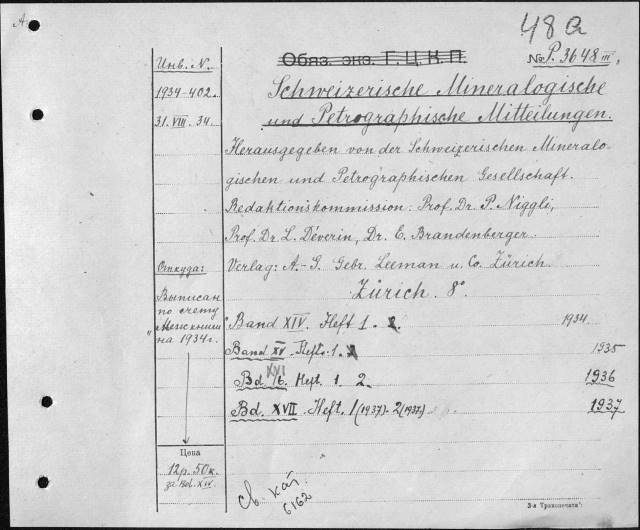 48a
Обяз. экз. Г.Ц.К.П.
№ P.3648 III,
Инв. N.
1934-402.
31.VIII.34.
Schweizerische Mineralogische
und Petrographische Mitteilungen.
Herausgegeben von der Schweizerischen Mineralo-
gischen und Petrographischen Gesellschaft.
Redaktionskommission: Prof. Dr. P. Niggli,
Prof. Dr. L. Déverin, Dr. E. Brandenberger.
Verlag: A.-G. Gebr. Leeman u. Co. Zürich.
Zürich. 8°
Откуда:
Выписан
по счету
"Межкниги"
на 1934г.
Band XIV. Heft 1. 2. 1934.
Band XV. Heft. 1. 1935
Bd. XVI Heft. 1. 2. 1936
Bd. XVII Heft. 1 (1937)-2 (1937) 1937
Цена
12р. 50к.
за Bd. XIV.
св. кат.
6162
3-я Транспечати